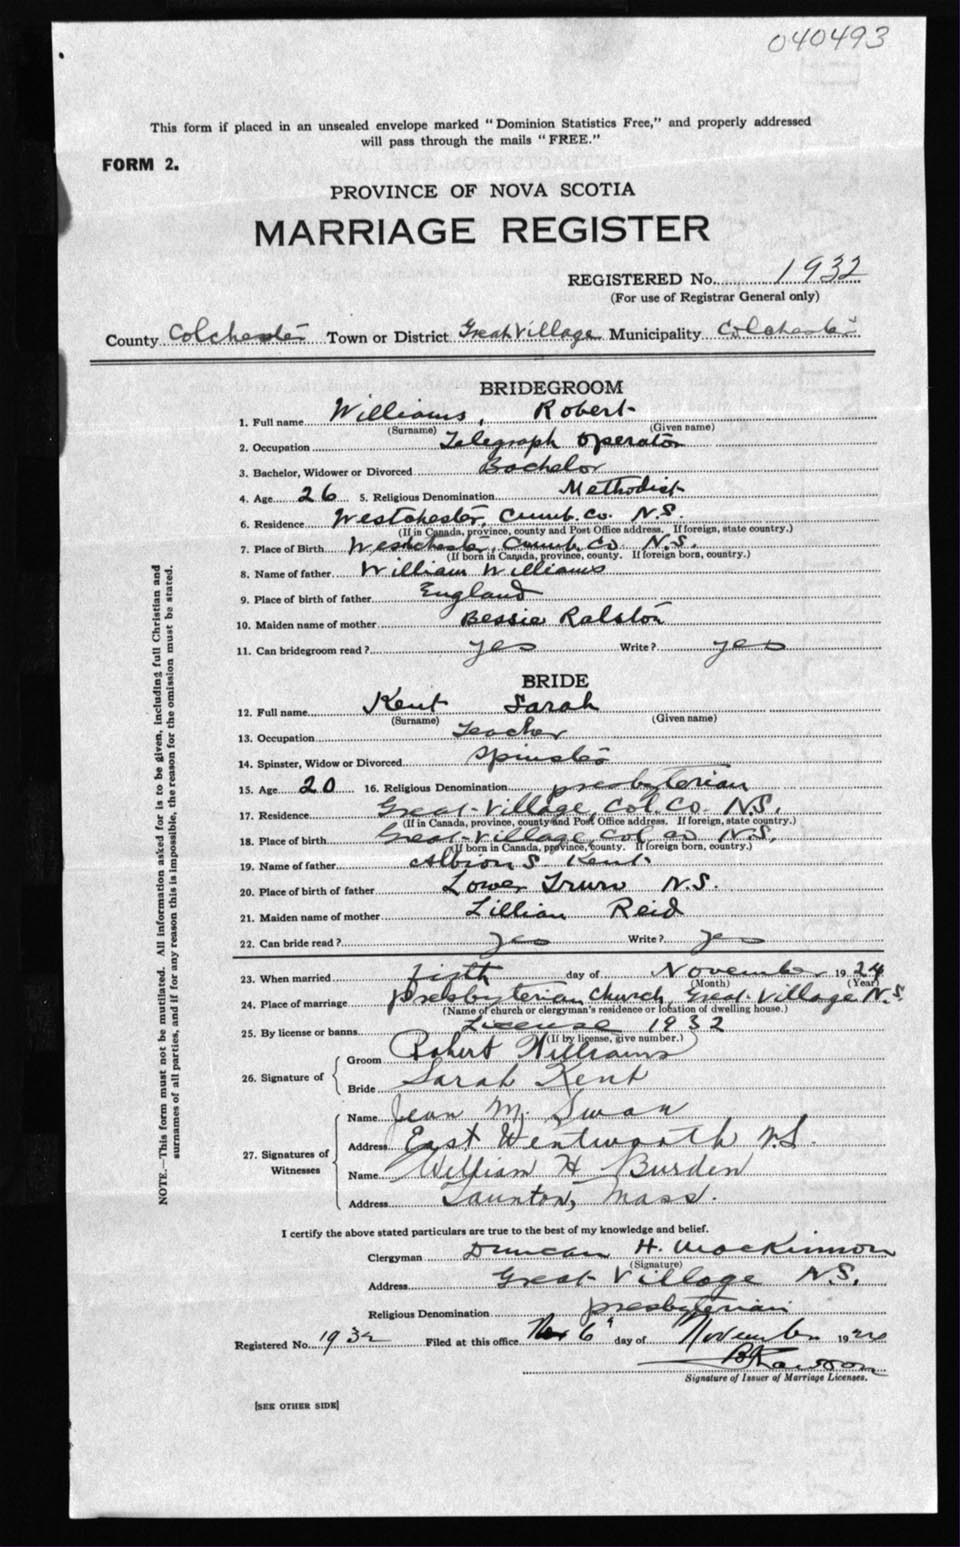 040493
This form if placed in an unsealed envelope marked "Dominion Statistics Free," and properly addressed
will pass through the mails "FREE."
FORM 2.
PROVINCE OF NOVA SCOTIA
MARRIAGE REGISTER
REGISTERED No. 1932
(For use of Registrar General only)
County Colchester Town or District Great Village Municipality Colchester
BRIDEGROOM
1. Full name Williams, Robert
(Surname) (Given name)
2. Occupation Telegraph Operator
3. Bachelor, Widower or Divorced Bachelor
4. Age 26 5. Religious Denomination Methodist
6. Residence Westchester, Cumb. Co. N.S.
(If in Canada, province, county and Post Office address. If foreign, state country.)
7. Place of Birth Westchester, Cumb. Co. N.S.
(If born in Canada, province, county. If foreign born, country.)
8. Name of father William Williams
9. Place of birth of father England
10. Maiden name of mother Bessie Ralston
11. Can bridegroom read? yes Write? yes
BRIDE
12. Full name Kent Sarah
(Surname) (Given name)
13. Occupation Teacher
14. Spinster, Widow or Divorced Spinster
15. Age 20 16. Religious Denomination presbyterian
17. Residence Great Village, Col. Co. N.S.
(If in Canada, province, county and Post Office address. If foreign, state country.)
18. Place of birth Great Village Col Co N.S.
(If born in Canada, province, county. If foreign born, country.)
19. Name of father Albion S. Kent
20. Place of birth of father Lower Truro N.S.
21. Maiden name of mother Lillian Reid
22. Can bride read? yes Write? yes
23. When married day of November 1924
(Month) (Year)
24. Place of marriage presbyterian Church, Great Village N.S.
(Name of church or clergyman's residence or location of dwelling house.)
25. By license or banns License 1932
(If by license, give number.)
26. Signature of Groom Robert Williams
Bride Sarah Kent
27. Signatures of Witnesses Name Jean M. Swan
Address East Wentworth N.S.
Name William H Burden
Address Taunton, Mass.
I certify the above stated particulars are true to the best of my knowledge and belief.
Clergyman Duncan H. MacKinnon
(Signature)
Address Great Village N.S.
Religious Denomination presbyterian
Registered No. 1932 Filed at this office 6 day of November 1924
Signature of Issuer of Marriage Licenses.
[SEE OTHER SIDE]
NOTE.—This form must not be mutilated. All information asked for is to be given, including full Christian and
surnames of all parties, and if for any reason this is impossible, the reason for the omission must be stated.